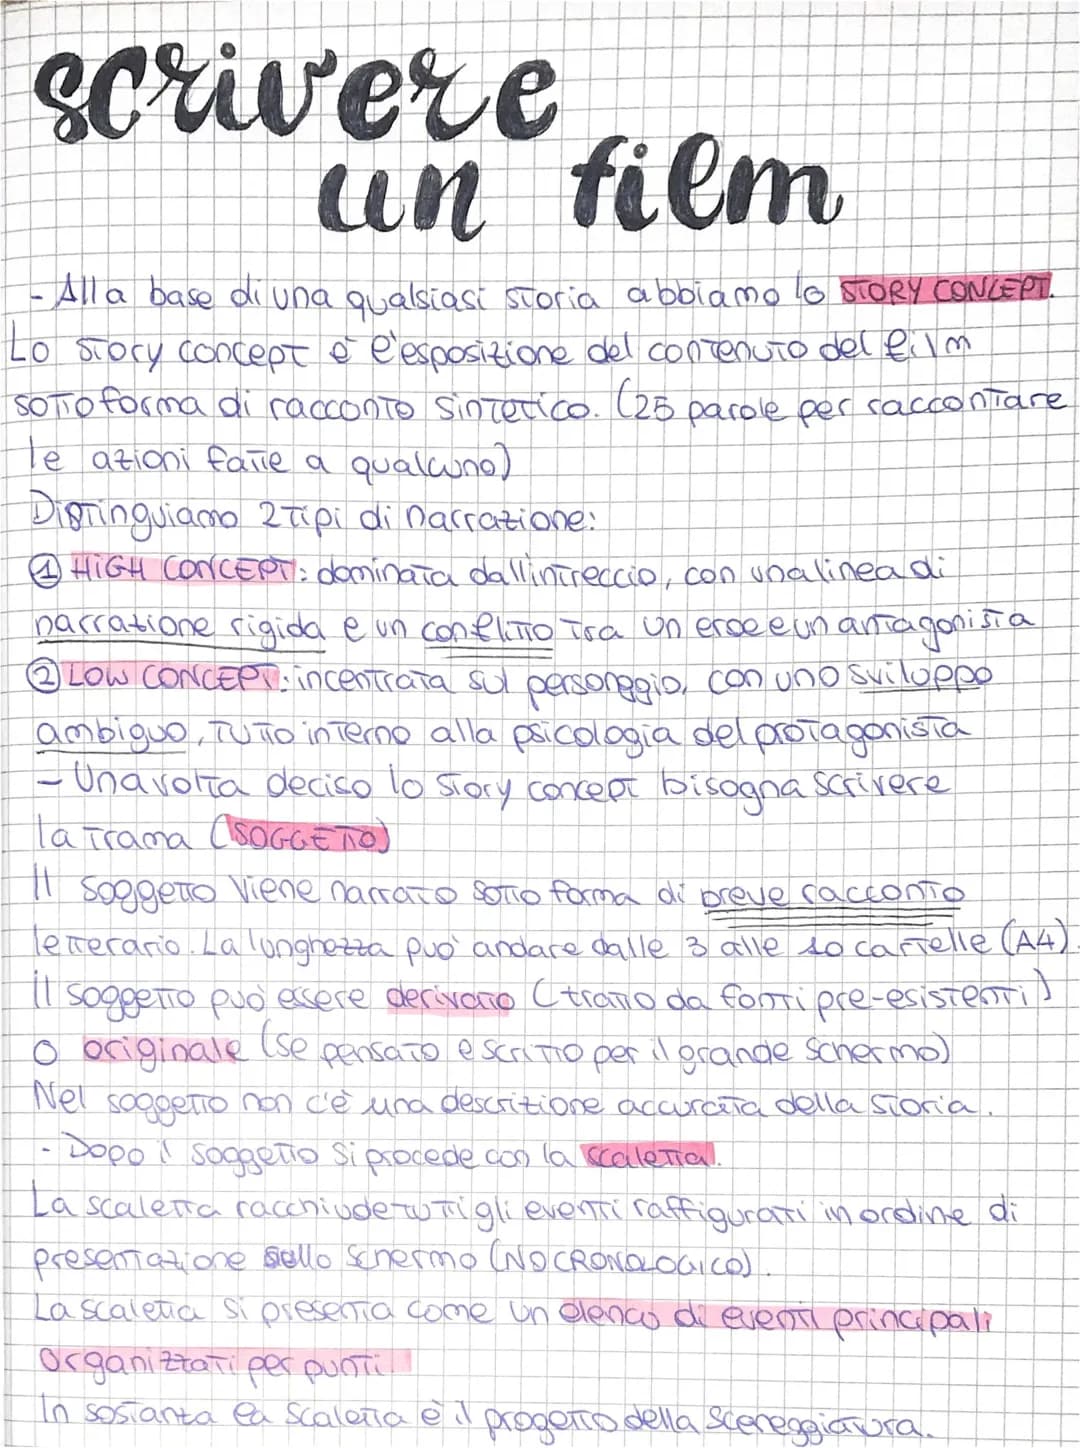 scrivere
un film
- Alla base di una qualsiasi storia abbiamo lo STORY CONCEPT.
Lo story concept è l'esposizione del contenuto del film
sotto forma di racconto sintetico. (25 parole per raccontare
le azioni fatte a qualcuno)
Distinguiamo 2 tipi di narrazione:
① HiGH CONCEPT: dominata dall'intreccio, con una linea di
narrazione rigida e un conflitto tra un eroe e un antagonista
② LOW CONCEPT: incentrata sul personaggio, con uno sviluppo
ambiguo, tutto interno alla psicologia del protagonista
- Una volta deciso lo story concept bisogna scrivere
la trama (SOGGETTO)
Il soggetto viene narrato sotto forma di breve racconto
letterario. La lunghezza puo' andare dalle 3 alle 10 cartelle (A4).
il soggetto può essere derivato (tratto da fonti pre-esistenti)
o originale (se pensato e scritto per il grande schermo)
Nel soggetto non c'è una descrizione accurata della storia.
- Dopo il soggetto si procede con la scaletta.
La scaletta racchiude tutti gli eventi raffigurati in ordine di
presentazione sullo schermo (NO CRONOLOGICO).
La scaletta si presenta come un elenco di eventi principali
organizzati per punti.
In sostanza la scaletta è il progetto della sceneggiatura.